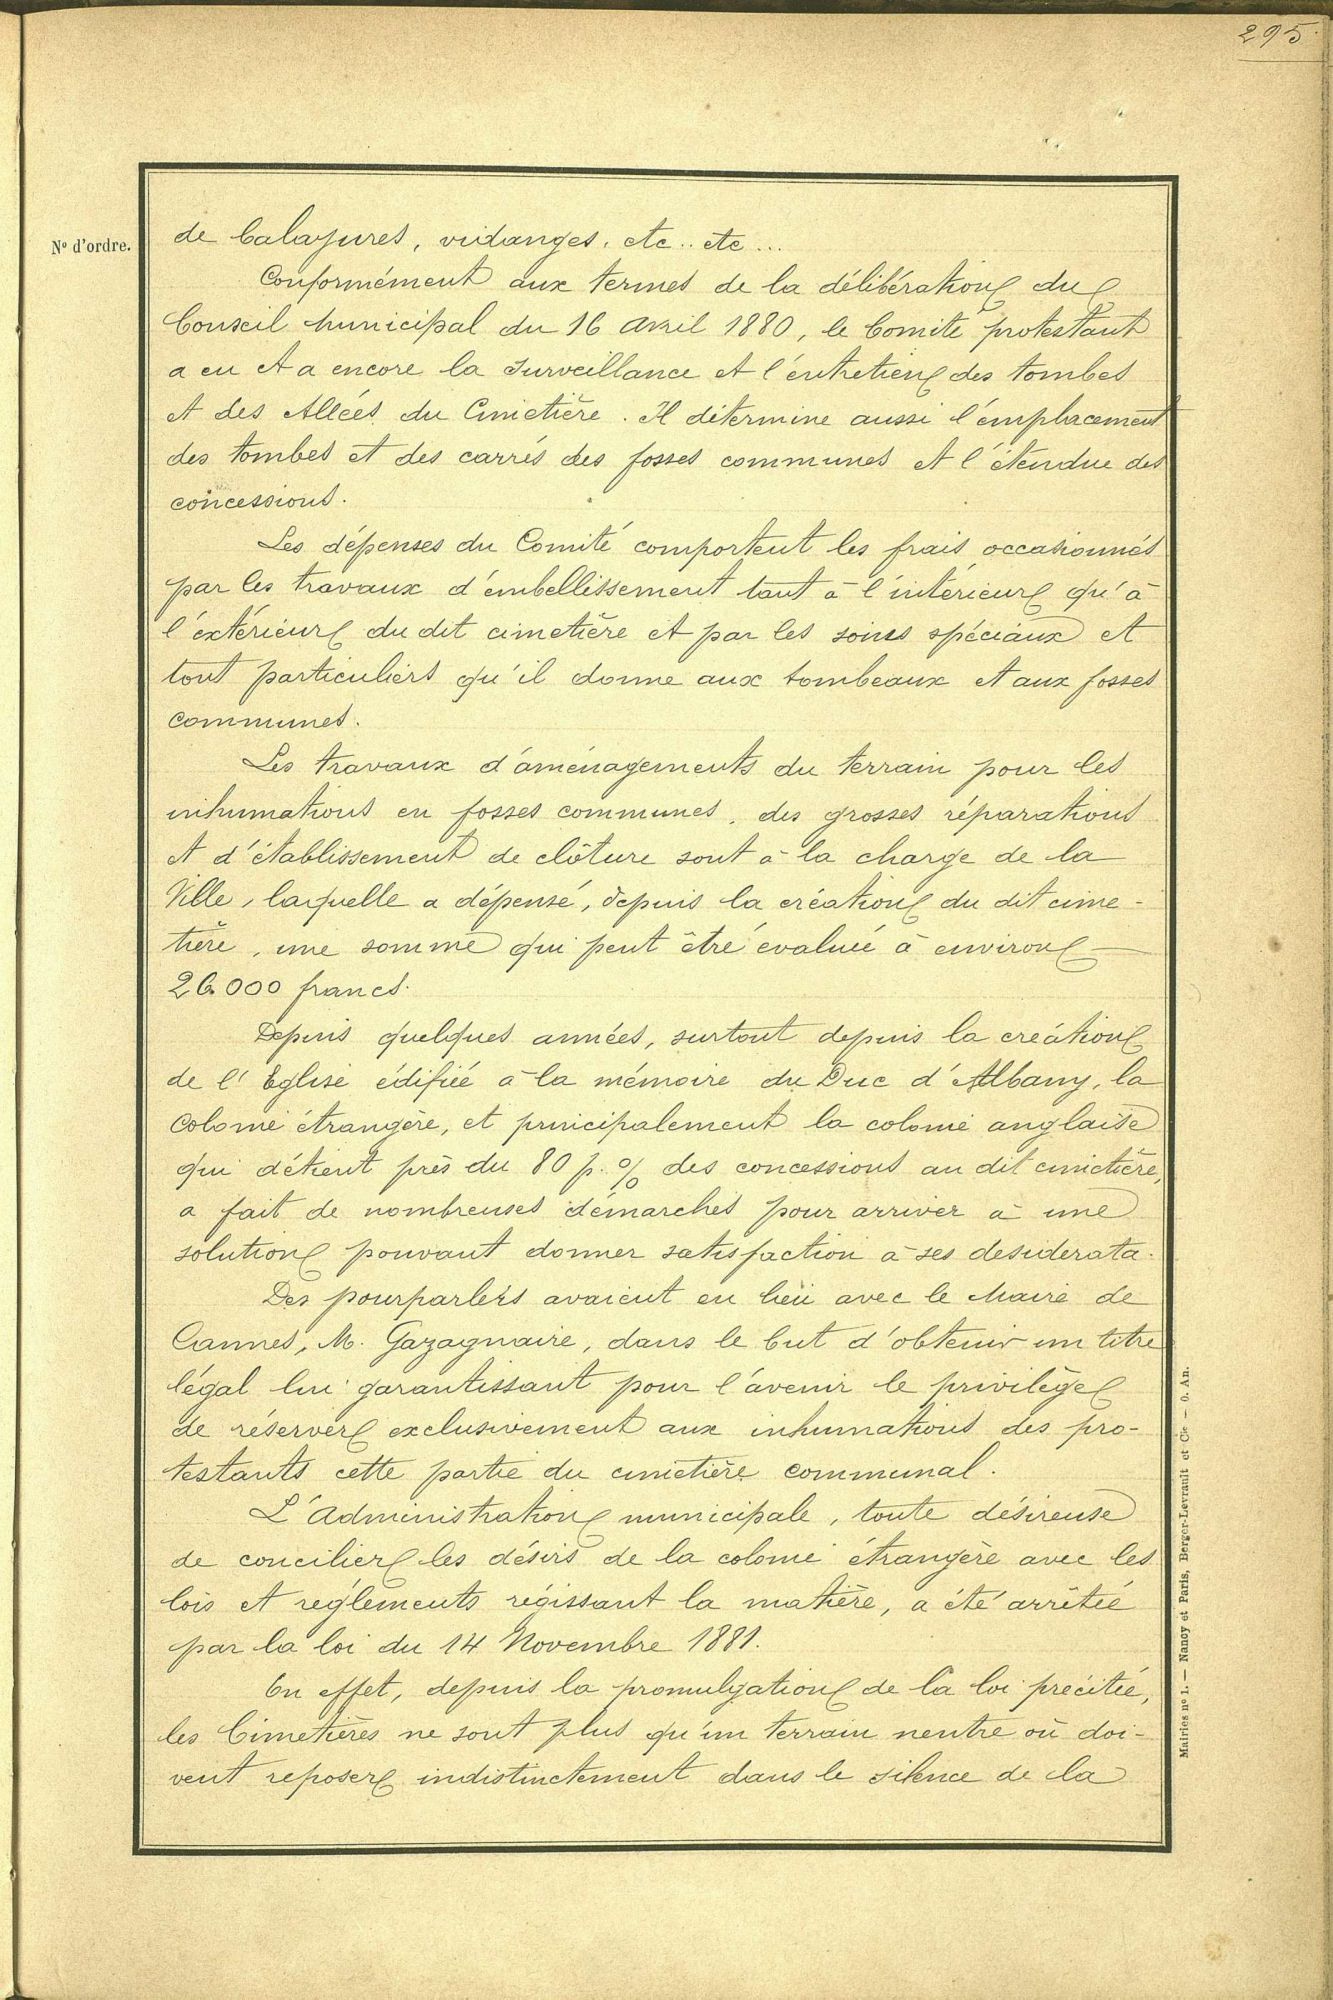 295
N° d'ordre.
de balayures, vidanges, etc.. etc...
Conformément aux termes de la délibération du
Conseil municipal du 16 avril 1880, le Comité protestant
a eu et a encore la surveillance et l'entretien des tombes
et des Allées du Cimetière. Il détermine aussi l'emplacement
des tombes et des carrés des fosses communes et l'étendue des
concessions.
Les dépenses du Comité comportent les frais occasionnés
par les travaux d'embellissement tant à l'intérieur qu'à
l'extérieur du dit cimetière et par les soins spéciaux et
tout particuliers qu'il donne aux tombeaux et aux fosses
communes.
Les travaux d'aménagements du terrain pour les
inhumations en fosses communes, des grosses réparations
et d'établissement de clôture sont à la charge de la
Ville, laquelle a dépensé, depuis la création du dit cime-
tière, une somme qui peut être évaluée à environ
26.000 francs.
Depuis quelques années, surtout depuis la création
de l'Eglise édifiée à la mémoire du Duc d'Albany, la
colonie étrangère, et principalement la colonie anglaise
qui détient près du 80 p. % des concessions au dit cimetière,
a fait de nombreuses démarches pour arriver à une
solution pouvant donner satisfaction à ses desiderata.
Des pourparlers avaient eu lieu avec le Maire de
Cannes, M. Gazagnaire, dans le but d'obtenir un titre
légal lui garantissant pour l'avenir le privilège
de réserver exclusivement aux inhumations des pro-
testants cette partie du cimetière communal.
L'Administration municipale, toute désireuse
de concilier les désirs de la colonie étrangère avec les
lois et règlements régissant la matière, a été arrêtée
par la loi du 14 Novembre 1881.
En effet, depuis la promulgation de la loi précitée,
les Cimetières ne sont plus qu'un terrain neutre où doi-
vent reposer indistinctement dans le silence de la
Mairies n° 1. — Nancy et Paris, Berger-Levrault et Cie — O. An.